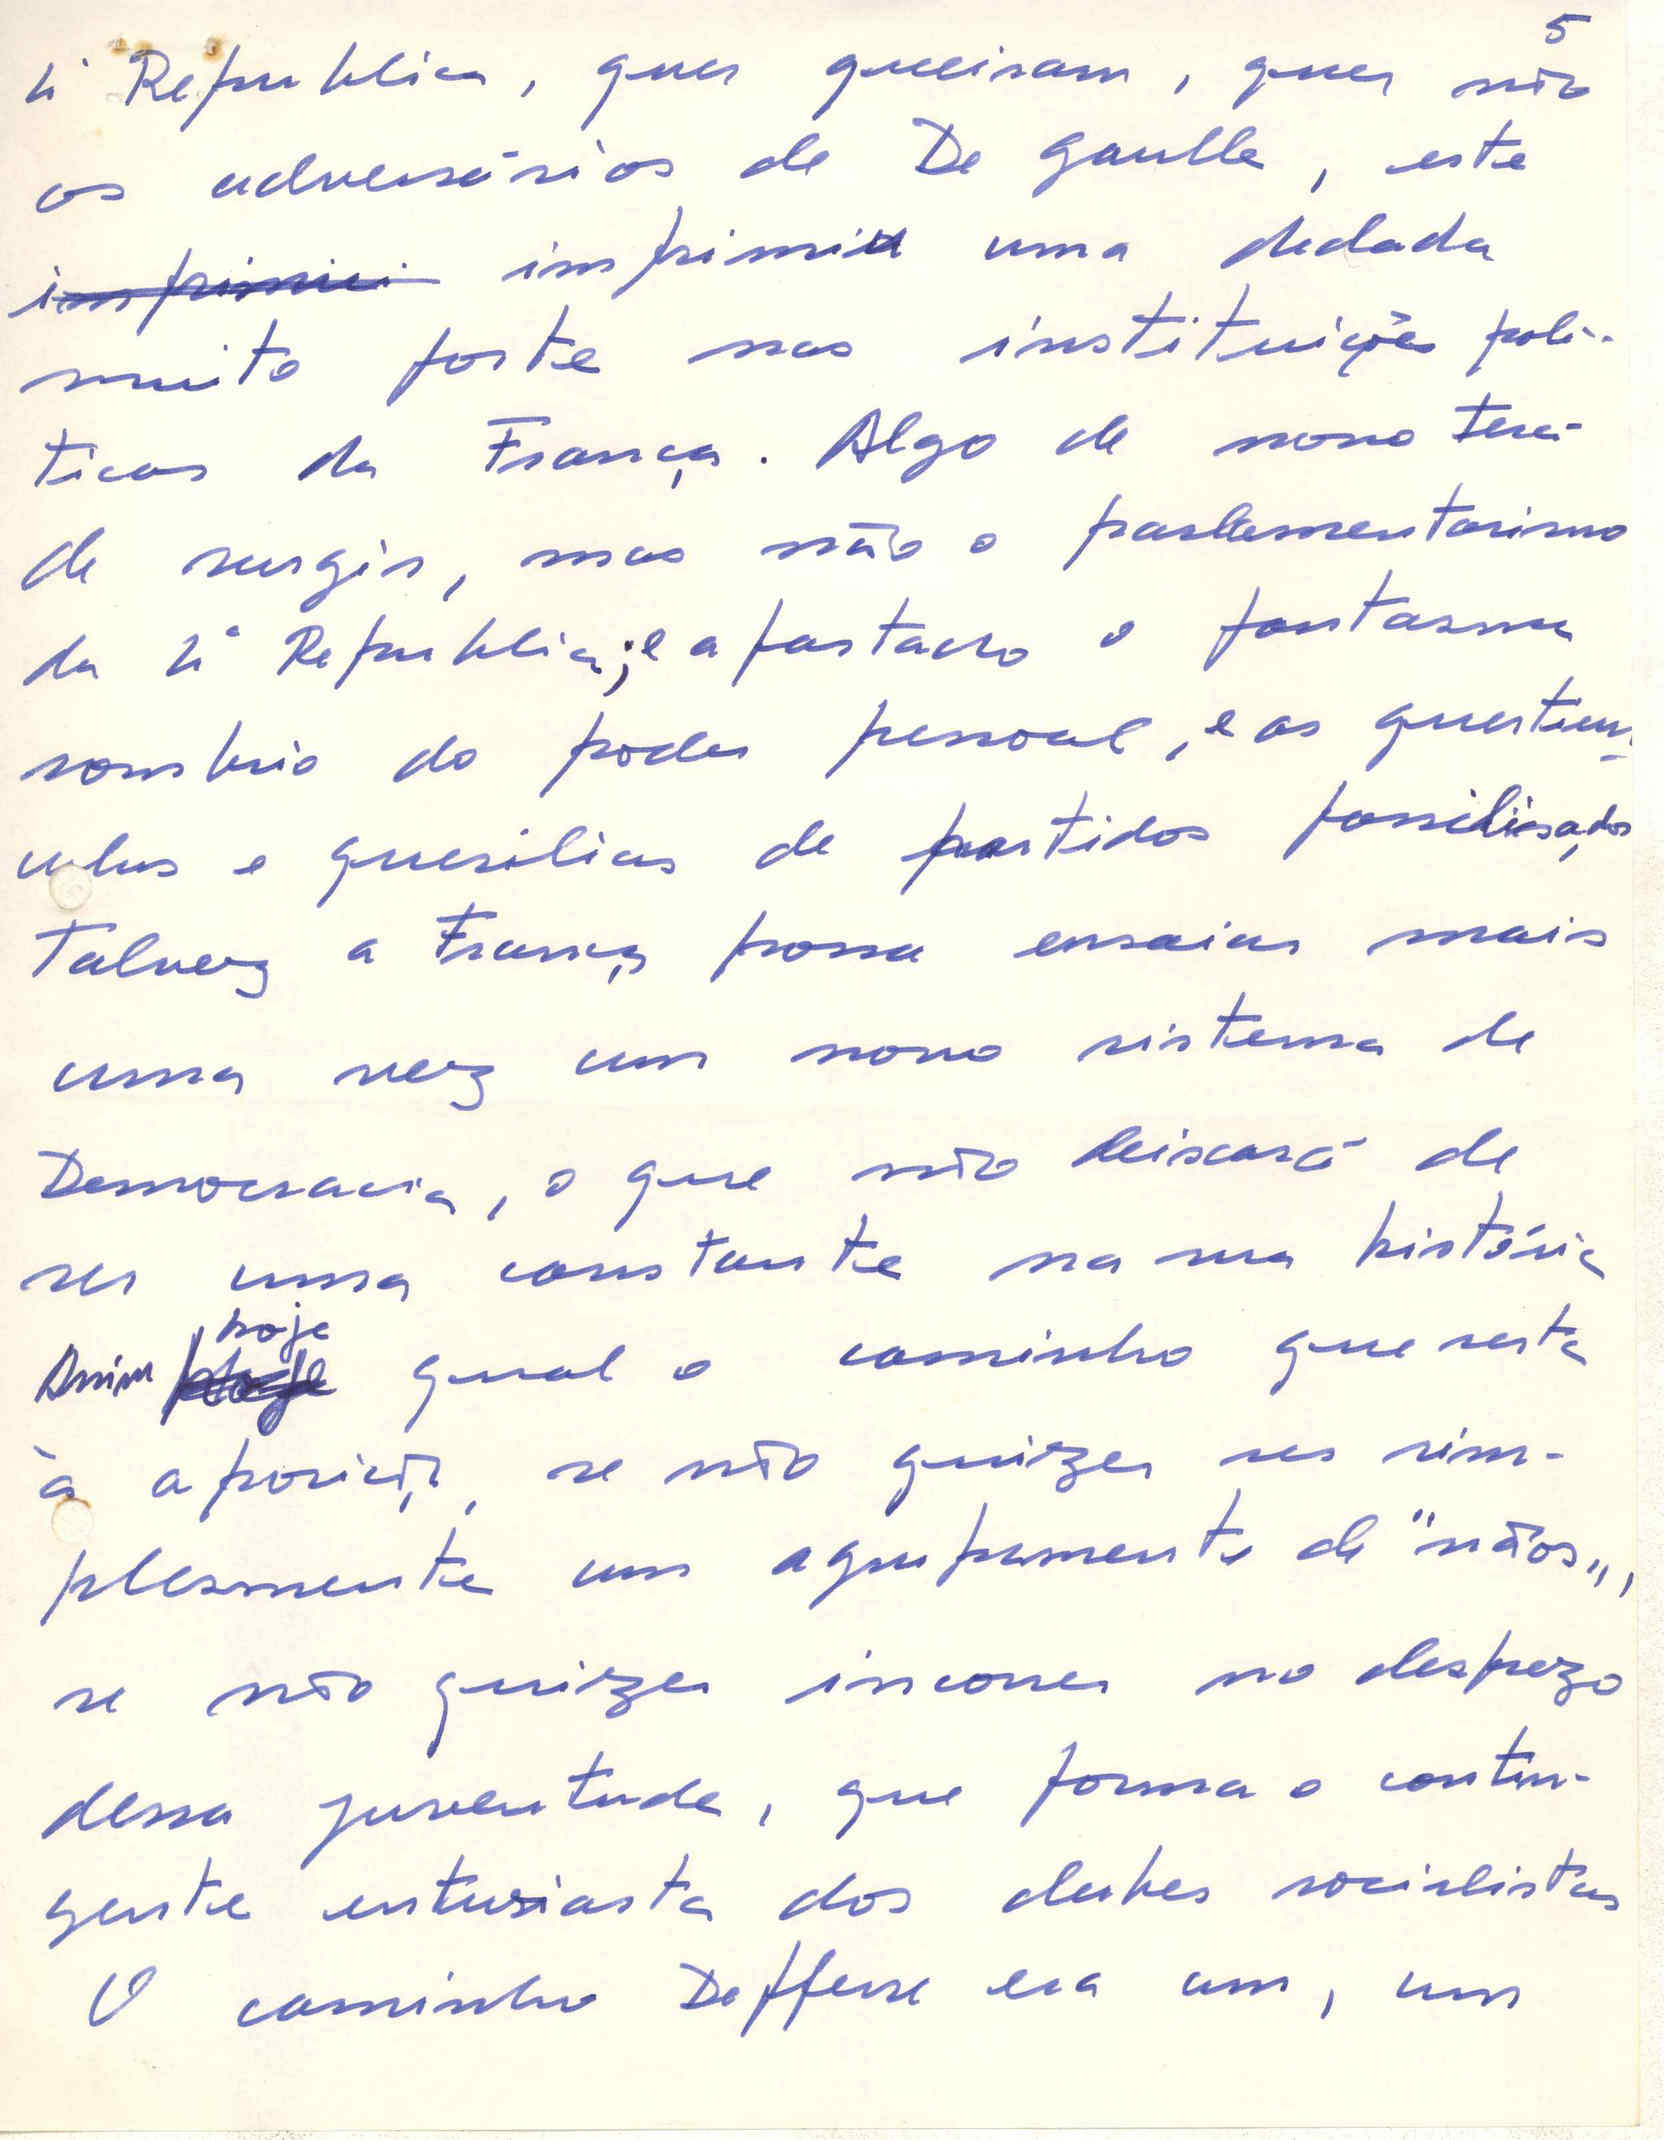 5
4ª Republica, quer queiram, quer não
os adversários de De Gaulle, este
imprimiu imprimiu uma dedada
muito forte nas instituições poli-
ticas da França. Algo de novo terá
de surgir, mas não o parlamentarismo
da 4ª Republica; e afastado o fantasma
sombrio do poder pessoal, e as questiun-
culas e quesilias de partidos fossilisados
Talvez a França possa ensaiar mais
uma vez um novo sistema de
Democracia, o que não deixará de
ser uma constante na sua história
hoje
Assim qual o caminho que resta
à oposição, se não quizer ser sim-
plesmente um agrupamento de "nãos",
se não quizer incorrer no desprezo
dessa juventude, que forma o contin-
gente entusiasta dos clubes socialistas
O caminho Defferre era um, um